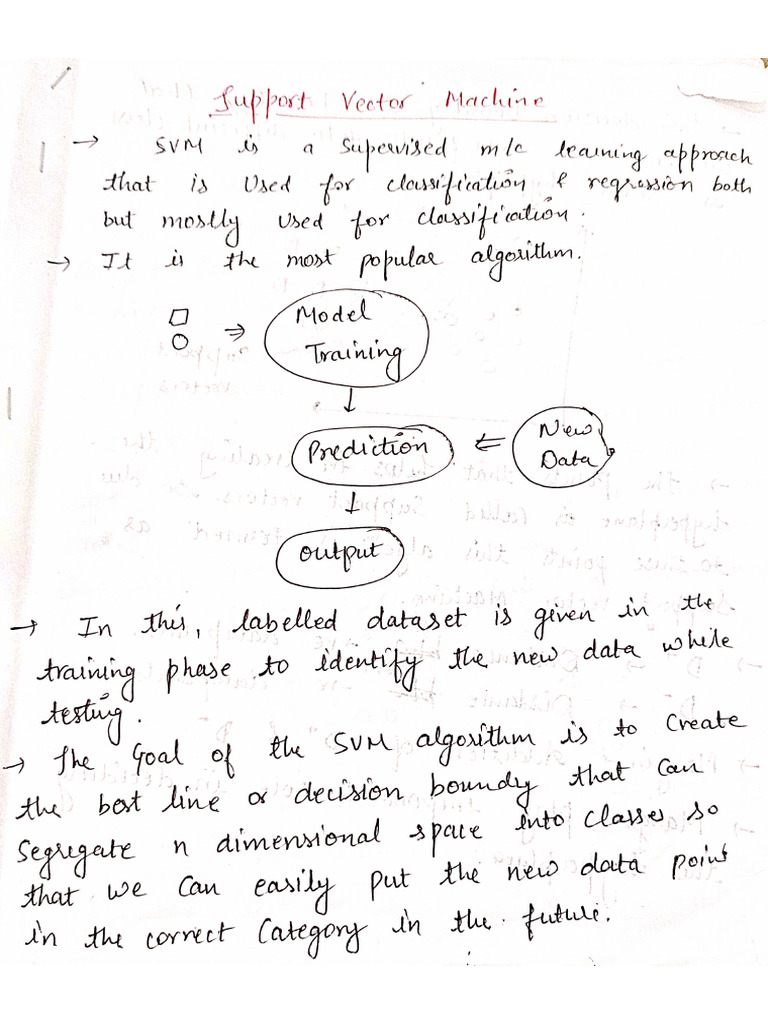 Support Vector Machine
→ SVM is a Supervised m/c learning approach
that is Used for classification & regression both
but mostly Used for classification.
→ It is the most popular algorithm.
Model
Training
Prediction
New
Data
output
→ In this, labelled dataset is given in the
training phase to identify the new data while
testing.
→ The Goal of the SVM algorithm is to Create
the best line or decision boundy that can
Segregate n dimensional space into classes so
that we can easily put the new data point
in the correct Category in the future.